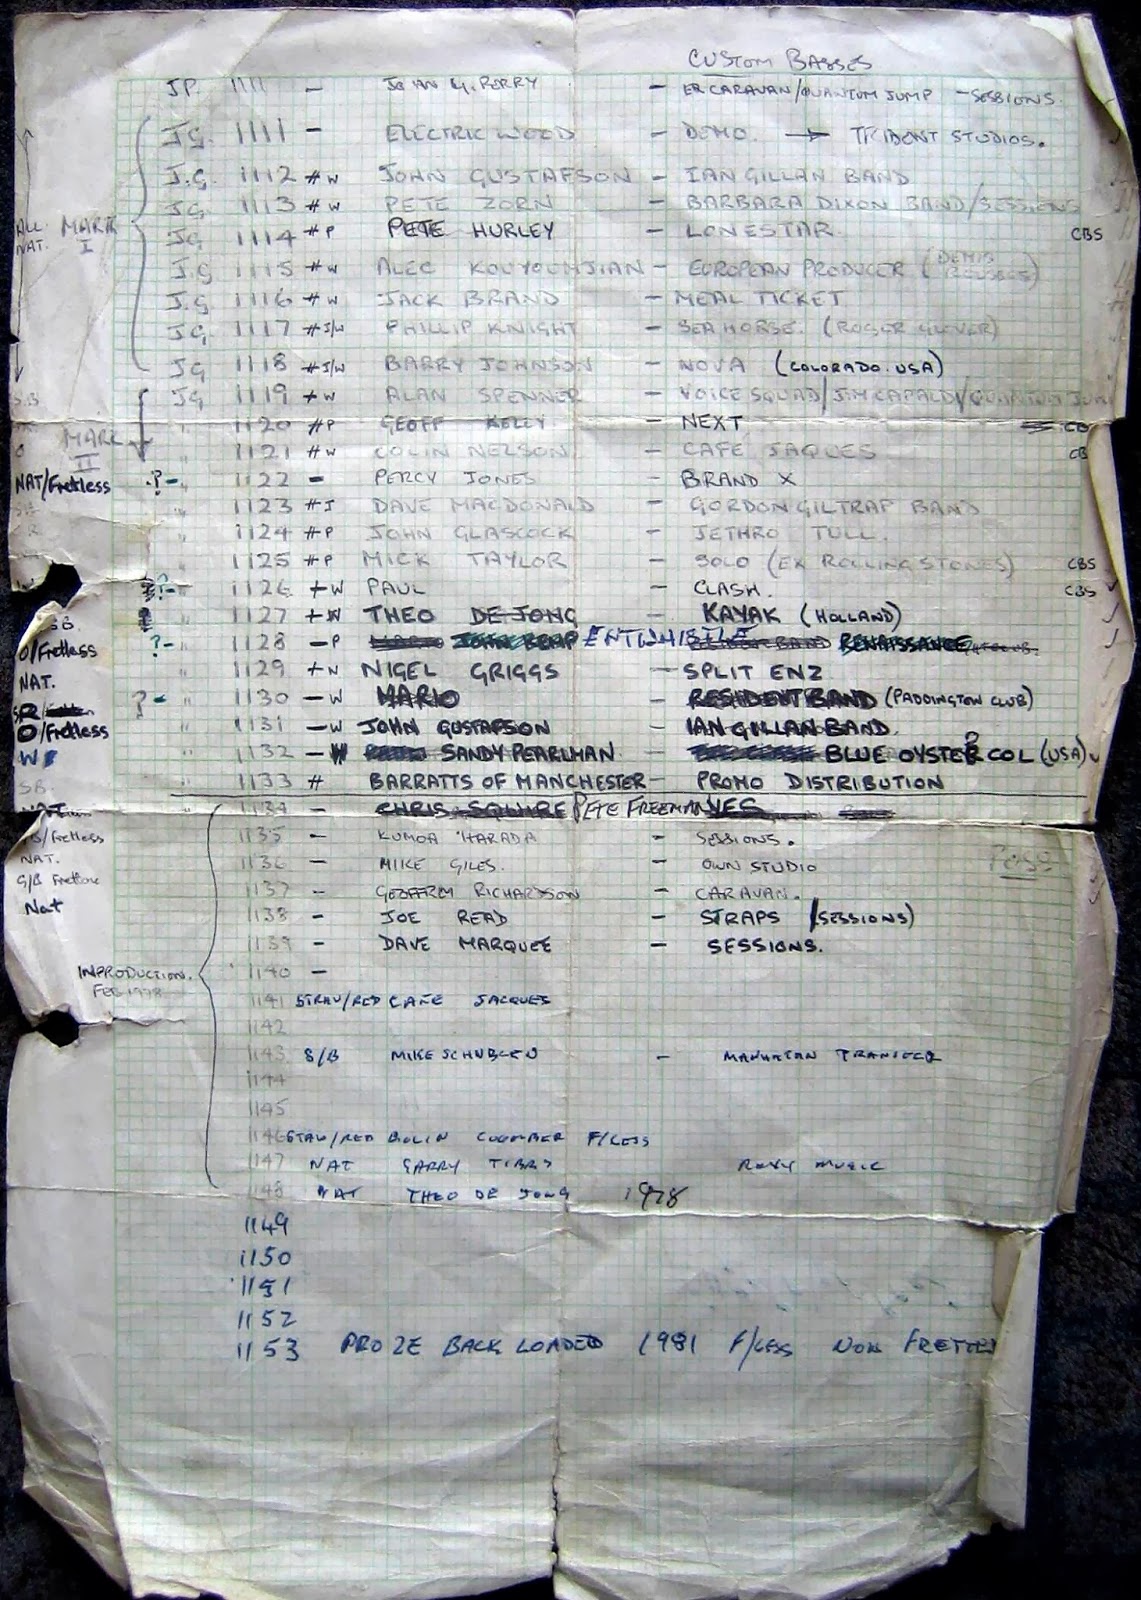 CUSTOM BASSES
JP. 1111 - JOHN G. PERRY - EX CARAVAN/QUANTUM JUMP - SESSIONS.
JG. 1111 - ELECTRIC WOOD - DEMO. → TRIDENT STUDIOS.
J.G. 1112 # W JOHN GUSTAFSON - IAN GILLAN BAND
JG 1113 # W PETE ZORN - BARBARA DIXON BAND/SESSIONS
ALL NAT. MARK I JG 1114 # P PETE HURLEY - LONESTAR. CBS
J.G 1115 # W ALEC KOUYOUMJIAN - EUROPEAN PRODUCER (DEMIS ROUSSOS)
J.G 1116 # W JACK BRAND - MEAL TICKET
JG. 1117 # I/W PHILLIP KNIGHT - SEAHORSE. (ROGER GLOVER)
JG 1118 # I/W BARRY JOHNSON - NOVA (COLORADO. USA)
S.B JG 1119 + W ALAN SPENNER - VOICE SQUAD/JIM CAPALDI/QUANTUM JUM
" 1120 # P GEOFF KELLY - NEXT CB
O MARK II " 1121 # W COLIN NELSON - CAFE JAQUES CB
NAT/Fretless .?- " 1122 - PERCY JONES - BRAND X
" 1123 # I DAVE MACDONALD - GORDON GILTRAP BAND
" 1124 # P JOHN GLASCOCK - JETHRO TULL.
" 1125 # P MICK TAYLOR - SOLO (EX ROLLING STONES) CBS
?- " 1126 + W PAUL - CLASH. CBS
SB. " 1127 + W THEO DE JONG - KAYAK (HOLLAND)
O/Fretless ?- " 1128 - P JOHN ENTWHISTLE BAND RENAISSANCE
NAT. " 1129 + W NIGEL GRIGGS - SPLIT ENZ
?- " 1130 - W MARIO - RESIDENT BAND (PADDINGTON CLUB)
O/Fretless " 1131 - W JOHN GUSTAFSON - IAN GILLAN BAND.
W " 1132 - W SANDY PEARLMAN - BLUE OYSTER COL (USA)
SB. " 1133 # BARRATTS OF MANCHESTER - PROMO DISTRIBUTION
NAT. 1134 - CHRIS SQUIRE PETE FREEMAN YES
/Fretless 1135 - KUMOA HARADA - SESSIONS.
NAT. 1136 - MIKE GILES. - OWN STUDIO
S/B Fretless 1137 - GEOFFREY RICHARDSON - CARAVAN.
Nat 1138 - JOE READ - STRAPS (SESSIONS)
1139 - DAVE MARQUEE - SESSIONS.
INPRODUCTION. FEB 1978 1140 -
1141 STRAW/RED CAFE JACQUES
1142
1143 S/B MIKE SCHNBLEN - MANHATAN TRANSFER
1144
1145
1146 STAW/RED COLOMBER F/LESS
1147 NAT GARRY TIBBS ROXY MUSIC
1148 NAT THEO DE JONG 1978
1149
1150
1151
1152
1153 BACK LOADED 1981 F/LESS NOW FRETTED